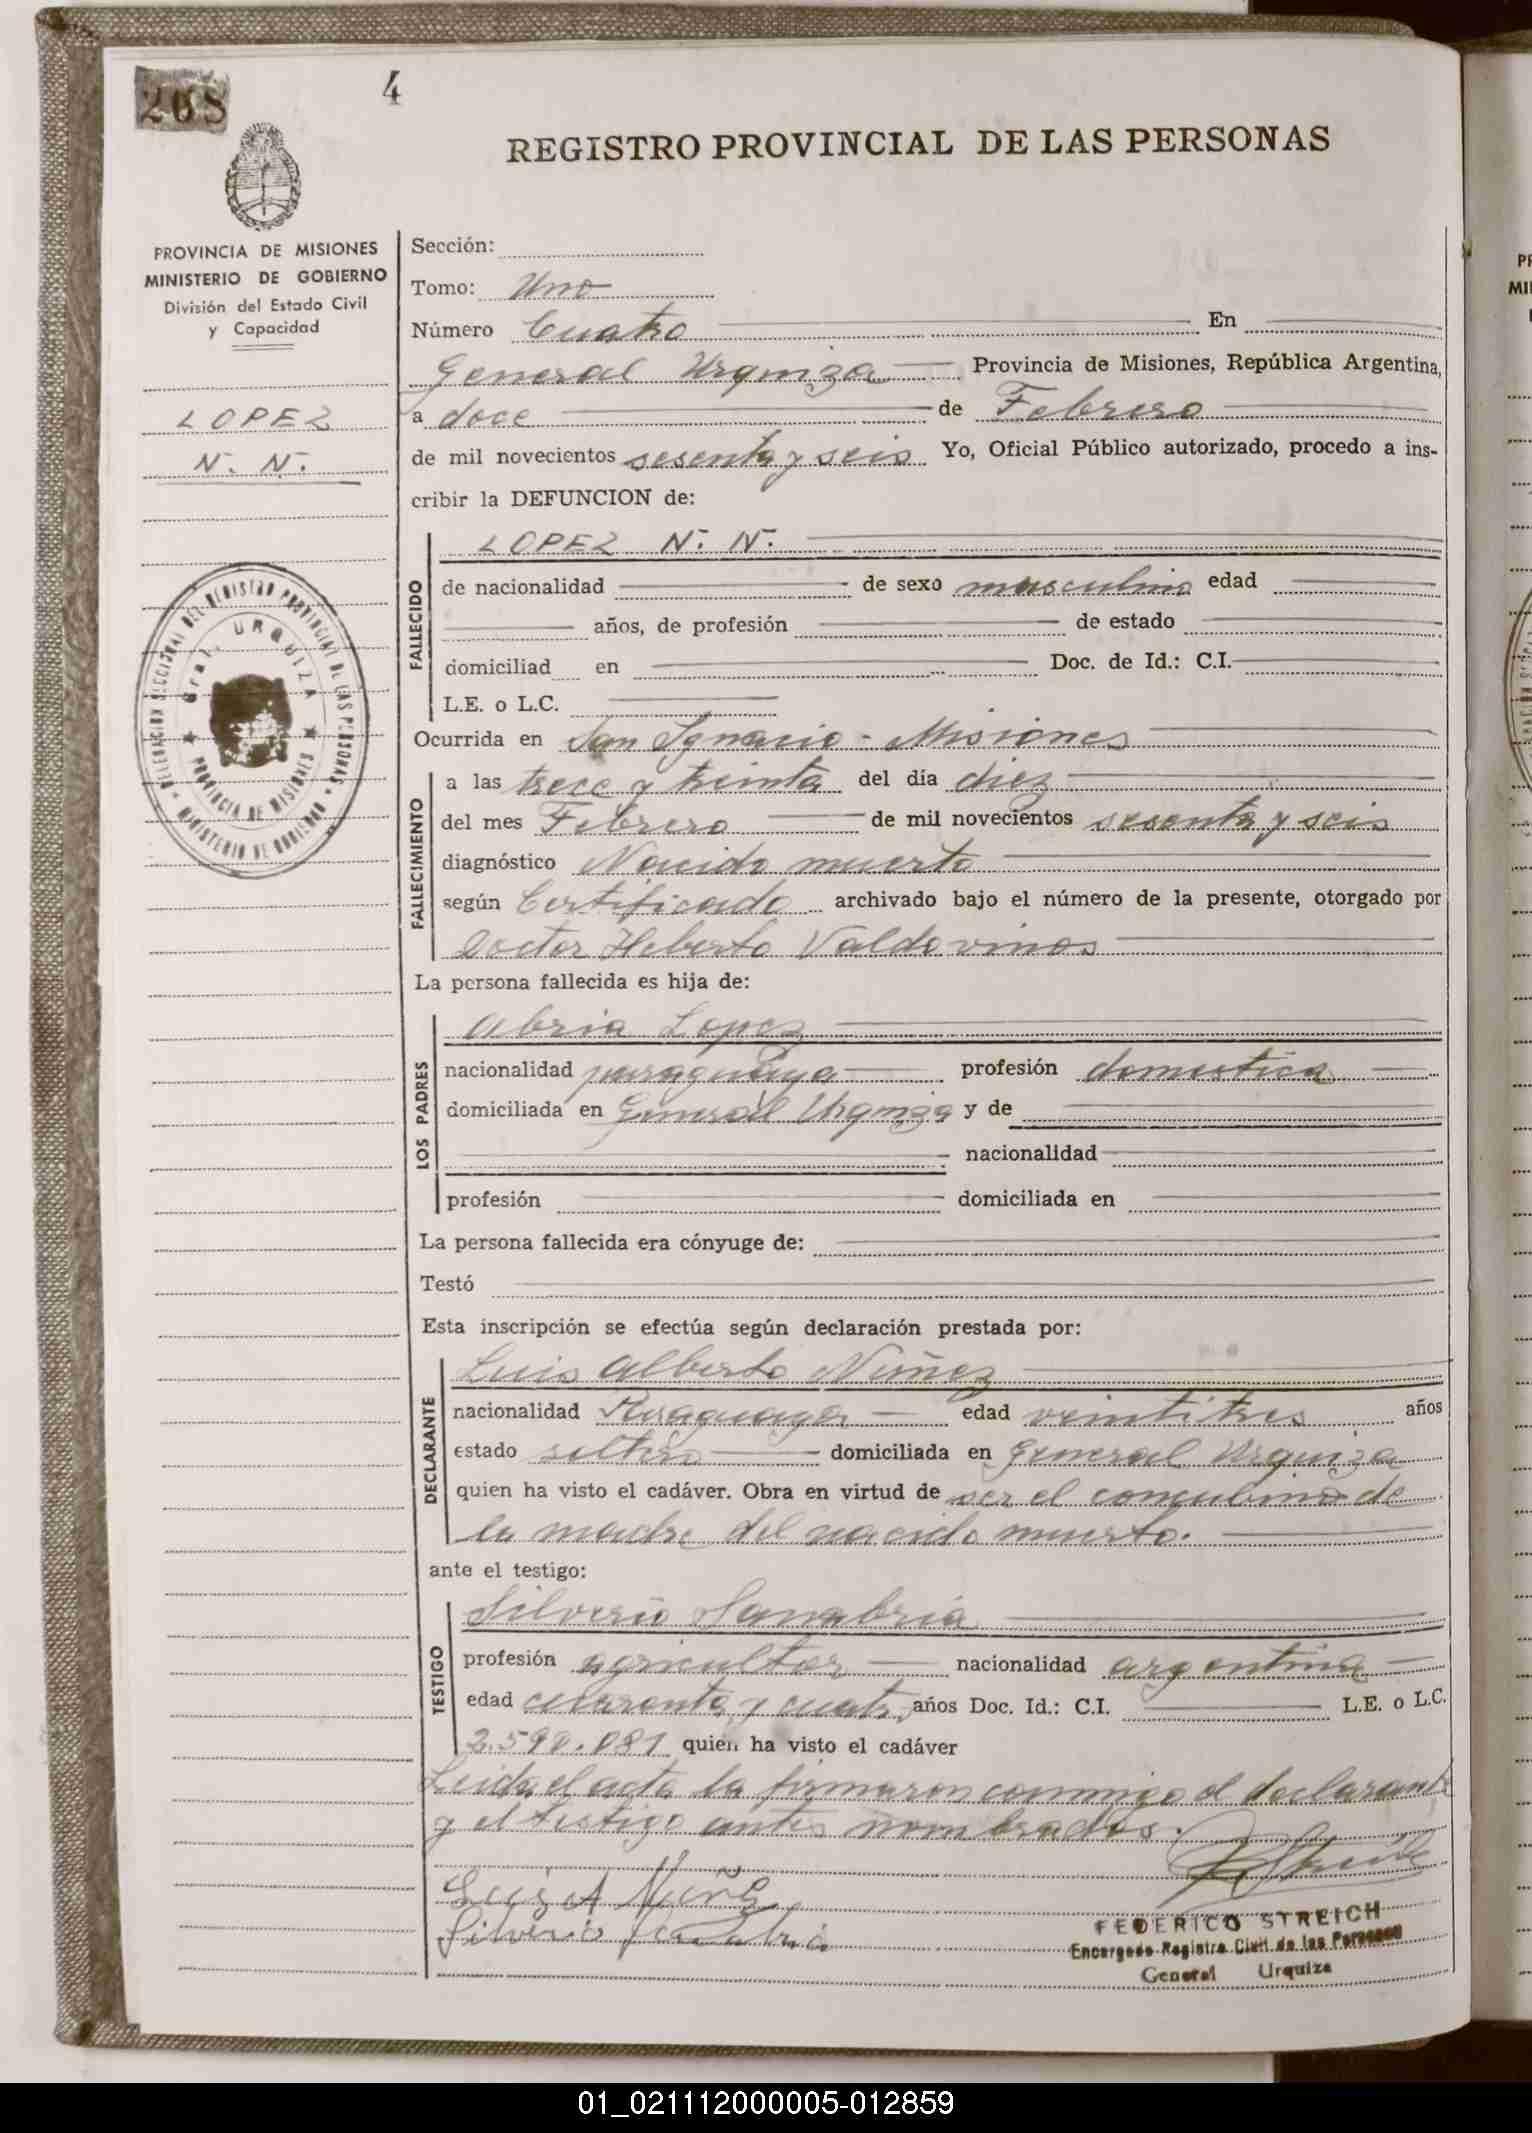 208
4
REGISTRO PROVINCIAL DE LAS PERSONAS
PROVINCIA DE MISIONES
MINISTERIO DE GOBIERNO
División del Estado Civil
y Capacidad
LOPEZ
N. N.
DELEGACION SECCIONAL DEL REGISTRO PROVINCIAL DE LAS PERSONAS
MINISTERIO DE GOBIERNO
Gral. URQUIZA
PROVINCIA DE MISIONES
Sección:
Tomo: Uno
Número Cuatro En
General Urquiza Provincia de Misiones, República Argentina,
a doce de Febrero
de mil novecientos sesenta y seis Yo, Oficial Público autorizado, procedo a ins-
cribir la DEFUNCION de:
FALLECIDO
LOPEZ N. N.
de nacionalidad de sexo masculino edad
años, de profesión de estado
domiciliad en Doc. de Id.: C.I.
L.E. o L.C.
Ocurrida en San Ignacio - Misiones
FALLECIMIENTO
a las trece y treinta del día diez
del mes Febrero de mil novecientos sesenta y seis
diagnóstico Nacido muerto
según Certificado archivado bajo el número de la presente, otorgado por
Doctor Heberto Valdovinos
La persona fallecida es hija de:
LOS PADRES
Abria Lopez
nacionalidad paraguaya profesión domestica
domiciliada en General Urquiza y de
nacionalidad
profesión domiciliada en
La persona fallecida era cónyuge de:
Testó
Esta inscripción se efectúa según declaración prestada por:
DECLARANTE
Luis Alberto Nuñez
nacionalidad Paraguaya edad veintitres años
estado soltero domiciliada en General Urquiza
quien ha visto el cadáver. Obra en virtud de ser el concubino de
la madre del nacido muerto.
ante el testigo:
TESTIGO
Silverio Sanabria
profesión agricultor nacionalidad argentina
edad cuarenta y cuatro años Doc. Id.: C.I. L.E. o L.C.
2.590.081 quien ha visto el cadáver
Leida el acta la firmaron conmigo el declarante
y el testigo antes nombrados.
Luis A Nuñez
Silverio Sanabria
FEDERICO STREICH
Encargado Registro Civil de las Personas
General Urquiza
01_021112000005-012859